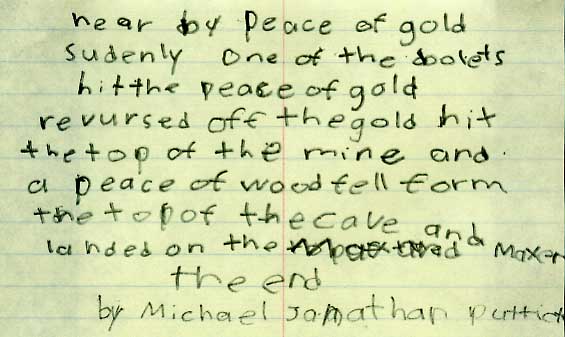 near by peace of gold
sudenly one of the boolets
hit the peace of gold
revursed off the gold hit
the top of the mine and
a peace of wood fell form
the top of the cave and
landed on the
the end
by Michael Jonathan